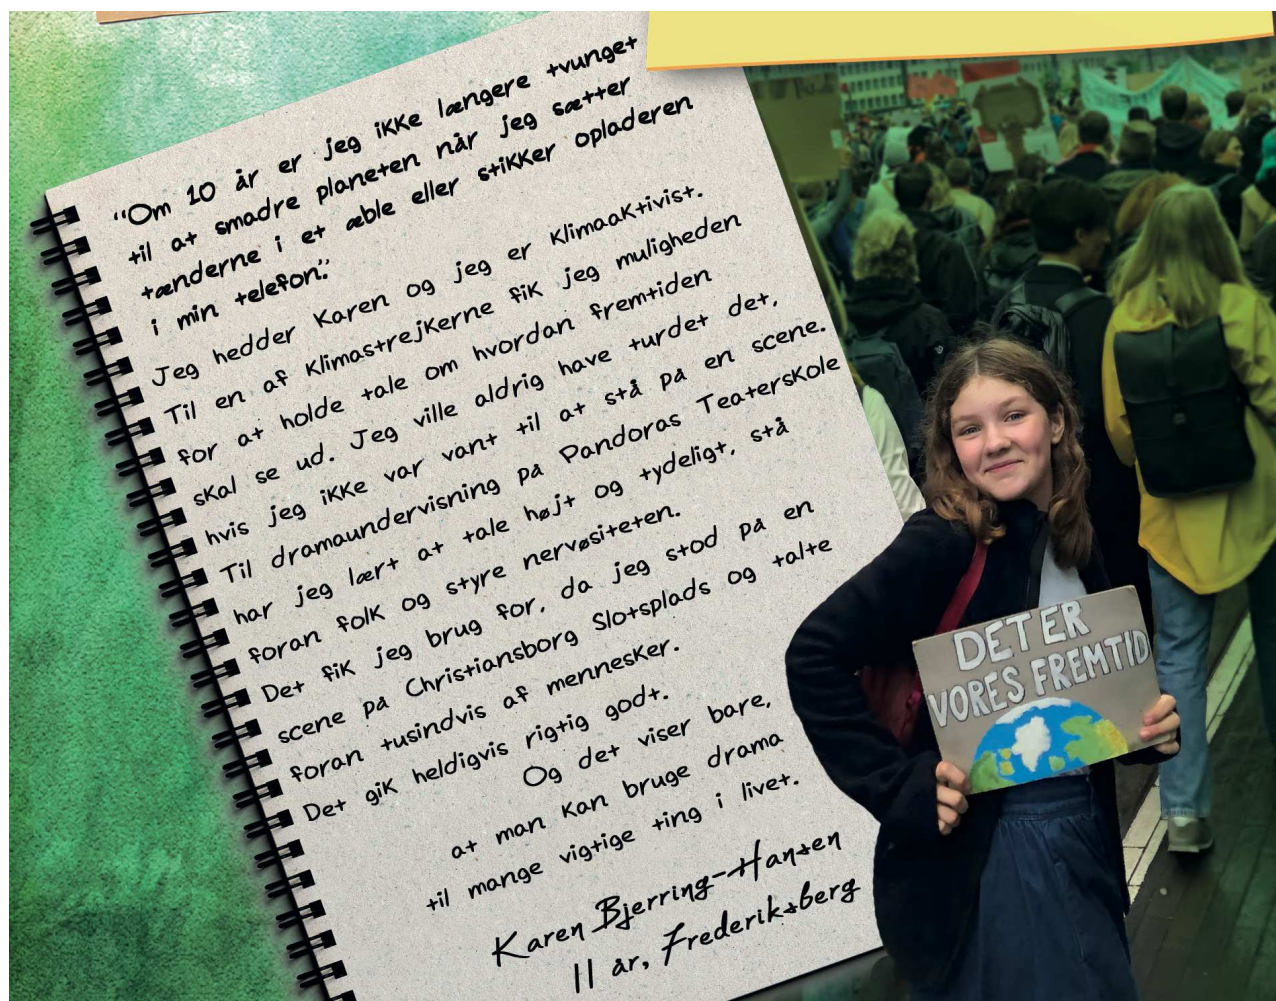 "Om 10 år er jeg ikke længere tvunget
til at smadre planeten når jeg sætter
tænderne i et æble eller stikker opladeren
i min telefon".
Jeg hedder Karen og jeg er Klimaaktivist.
Til en af Klimastrejkerne fik jeg muligheden
for at holde tale om hvordan fremtiden
skal se ud. Jeg ville aldrig have turdet det,
hvis jeg ikke var vant til at stå på en scene.
Til dramaundervisning på Pandoras Teaterskole
har jeg lært at tale højt og tydeligt, stå
foran folk og styre nervøsiteten.
Det fik jeg brug for, da jeg stod på en
scene på Christiansborg Slotsplads og talte
foran tusindvis af mennesker.
Det gik heldigvis rigtig godt.
Og det viser bare,
at man kan bruge drama
til mange vigtige ting i livet.
Karen Bjerring-Hansen
11 år, Frederiksberg
DET ER
VORES FREMTID